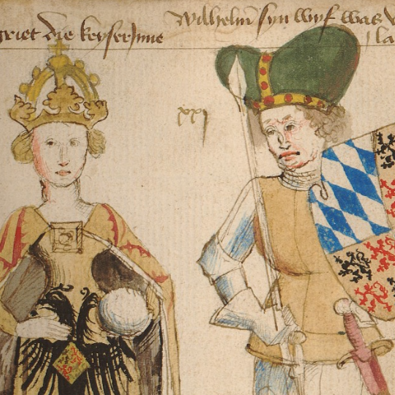 griet die keyserinne
Wilhelm syn wyf was
xxj